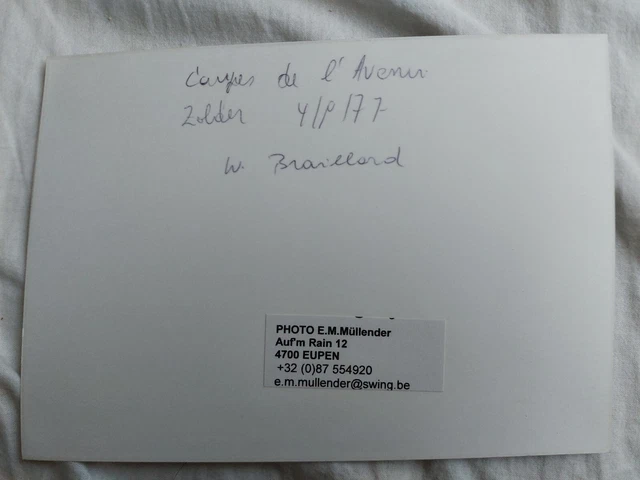 Coupes de l'Avenir
Zolder 4/9/77
W. Braillard
PHOTO E.M.Müllender
Auf'm Rain 12
4700 EUPEN
+32 (0)87 554920
e.m.mullender@swing.be